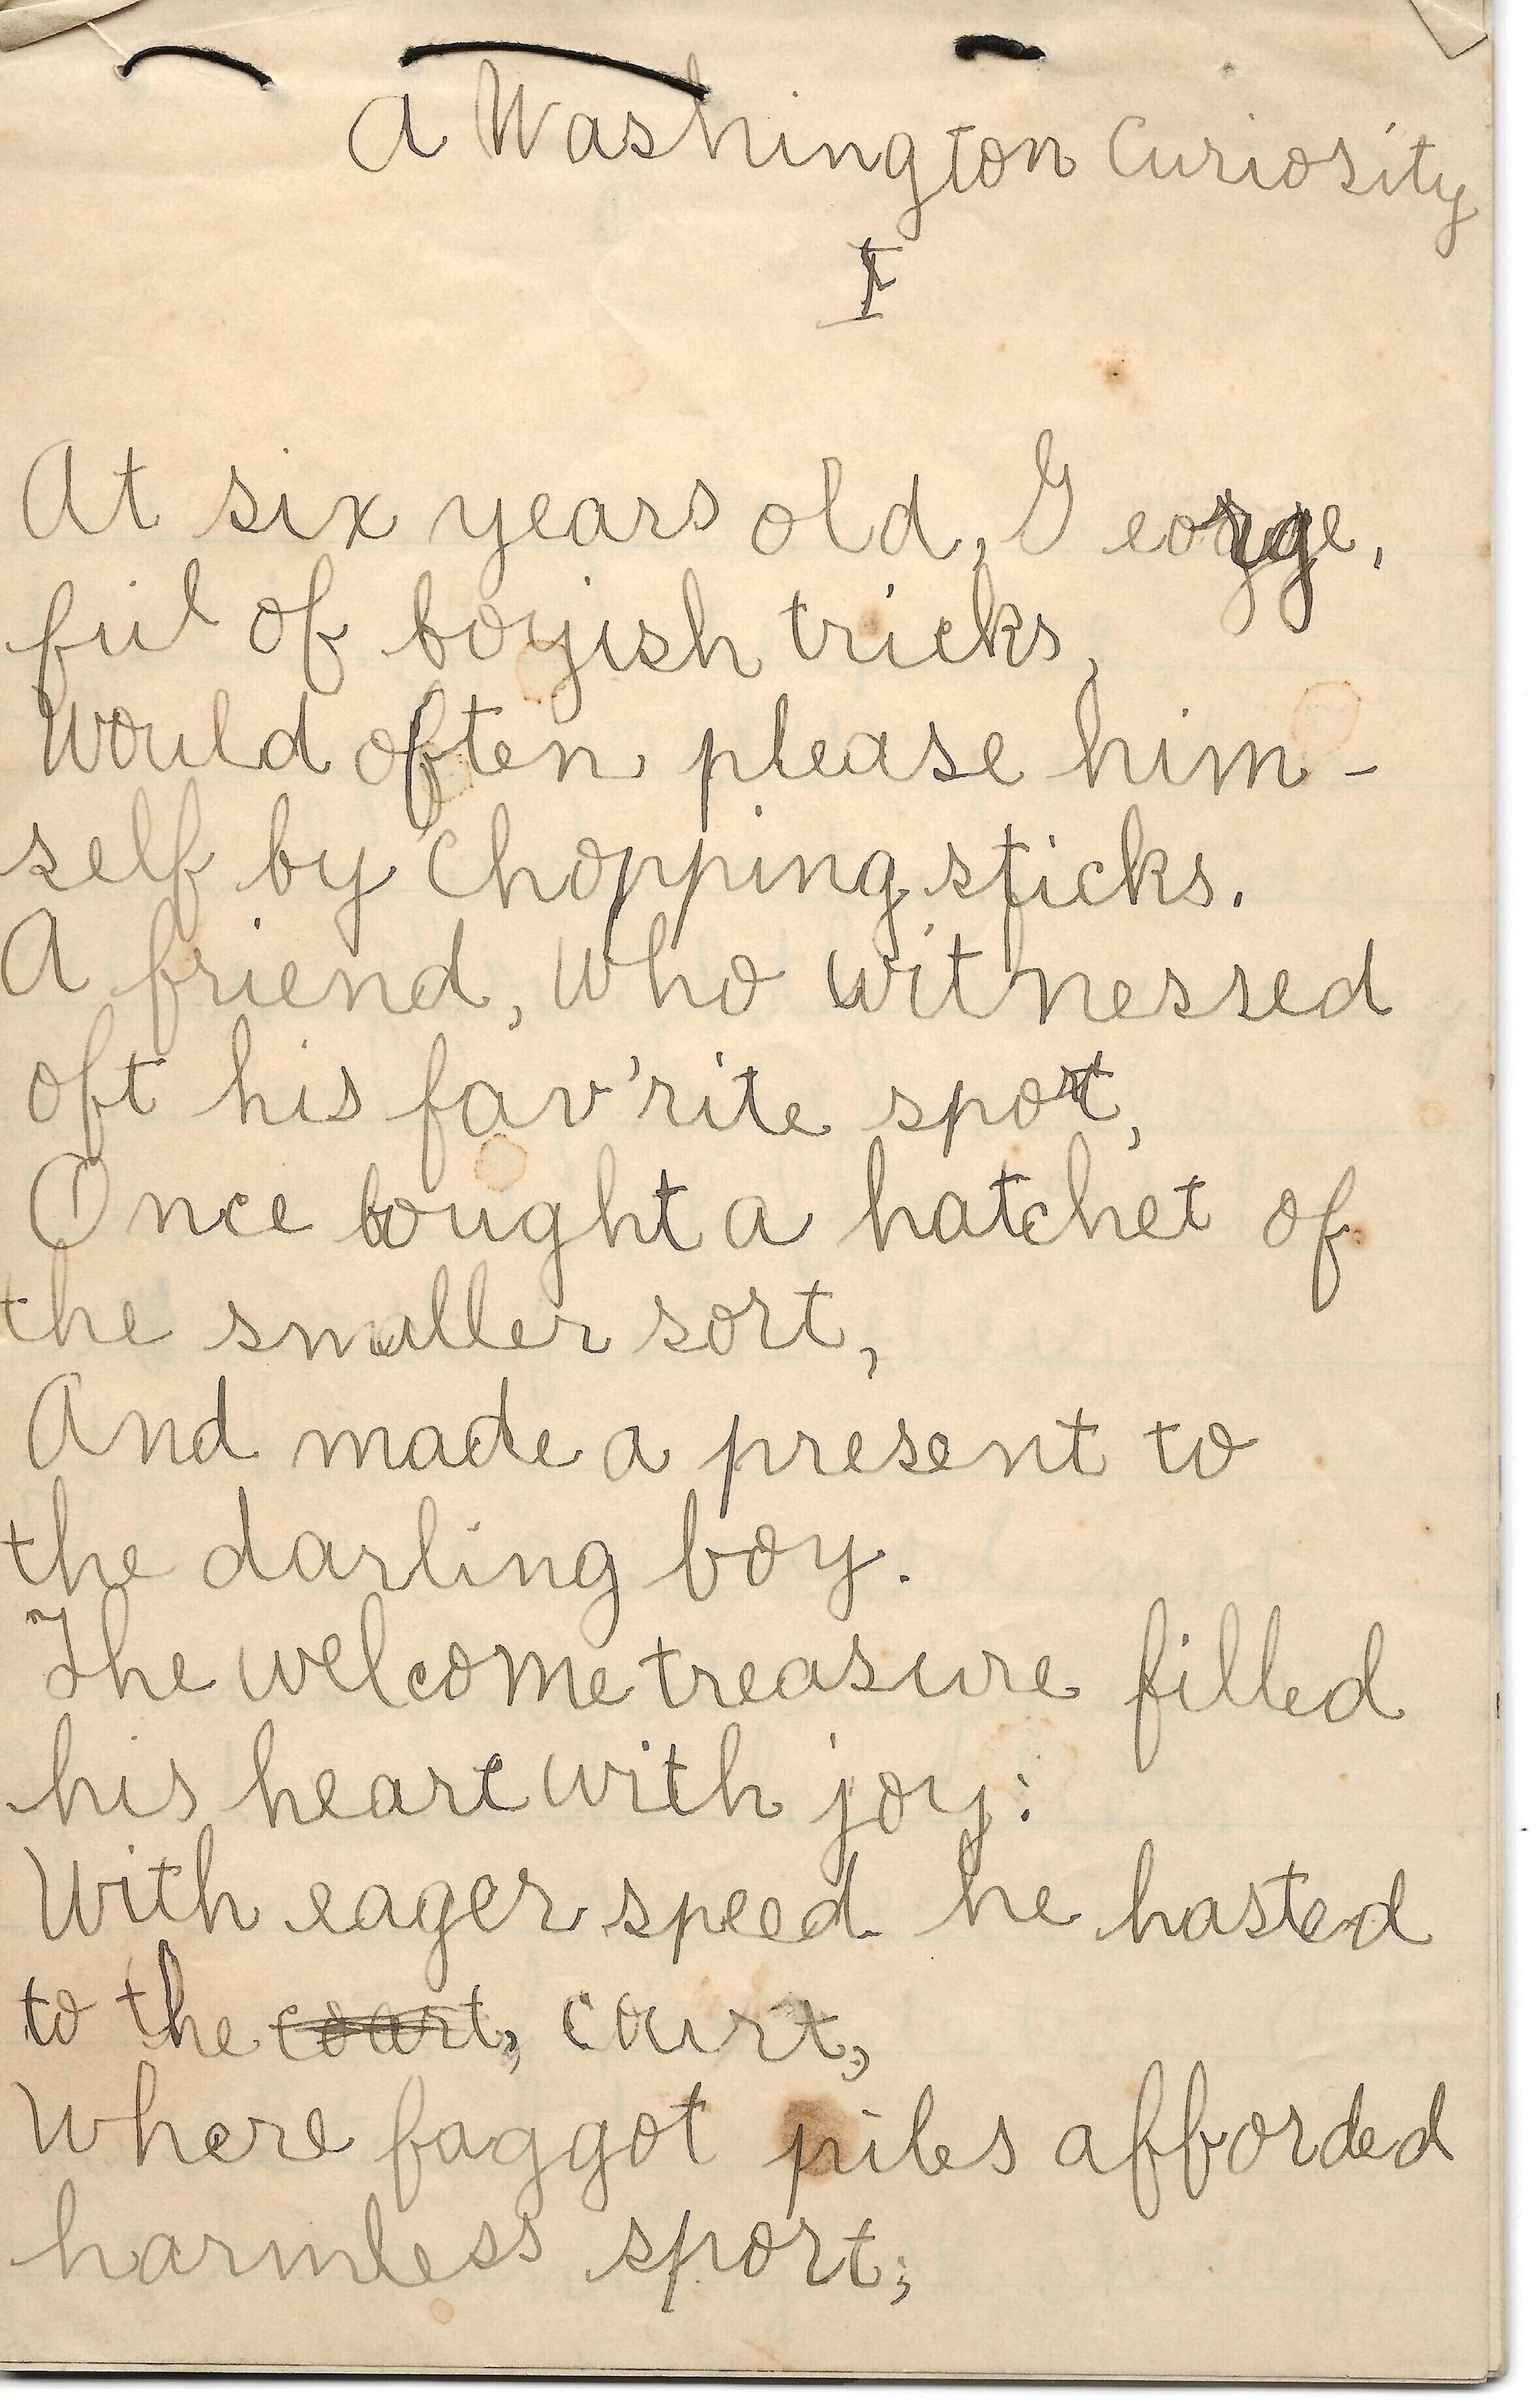 A Washington Curiosity
I
At six years old, George,
full of boyish tricks,
Would often please him-
self by chopping sticks.
A friend, who witnessed
oft his fav'rite sport,
Once bought a hatchet of
the smaller sort,
And made a present to
the darling boy.
The welcome treasure filled
his heart with joy:
With eager speed he hasted
to the court, court,
Where faggot piles afforded
harmless sport;